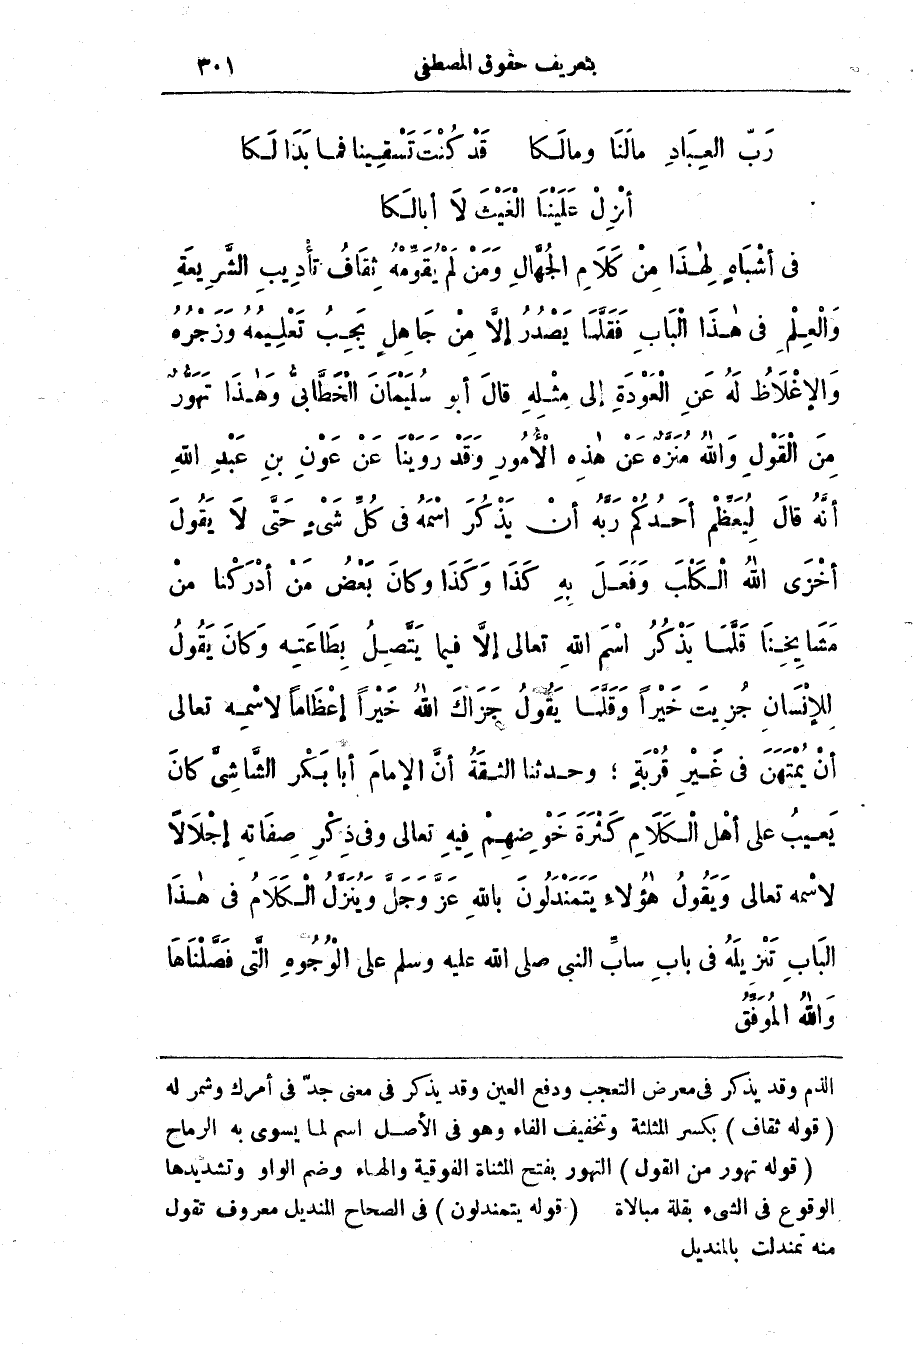 بتعريف حقوق المصطفى ٣٠١
رَبّ العِبَادِ مالَنَا ومالَكا قَدْ كُنْتَ تَسْقِينا فما بَدَا لَكا
أنْزِلْ عَلَيْنَا الْغَيْثَ لَا أبالَكا
فى أشْبَاهٍ لِهٰذَا مِنْ كَلَامِ الجُهَّالِ وَمَنْ لَمْ يُقَوِّمْهُ ثِقَافُ تأْدِيبِ الشَّرِيعَةِ
وَالْعِلْمِ فى هٰذَا الْبَابِ فَقَلَّمَا يَصْدُرُ إلَّا مِنْ جَاهِلٍ يَجِبُ تَعْلِيمُهُ وَزَجْرُهُ
وَالإغْلَاظُ لَهُ عَنِ الْعَوْدَةِ إلى مِثْلِهِ قالَ أبو سُلَيْمَانَ الْخَطَّابىُّ وَهٰذَا تَهَوُّرٌ
مِنَ الْقَوْلِ وَاللهُ مُنَزَّهٌ عَنْ هٰذِهِ الْأُمُورِ وَقَدْ رَوَيْنَا عَنْ عَوْنِ بنِ عَبْدِ اللهِ
أنَّهُ قالَ لِيُعَظِّمْ أحَدُكُمْ رَبَّهُ أنْ يَذْكُرَ اسْمَهُ فى كُلِّ شَىْءٍ حَتَّى لَا يَقُولَ
أخْزَى اللهُ الْكَلْبَ وَفَعَلَ بِهِ كَذَا وَكَذَا وكانَ بَعْضُ مَنْ أدْرَكْنا مِنْ
مَشَايِخِنَا قَلَّمَا يَذْكُرُ اسْمَ اللهِ تعالى إلَّا فيما يَتَّصِلُ بِطَاعَتِهِ وَكانَ يَقُولُ
لِلإنْسَانِ جُزِيتَ خَيْراً وَقَلَّمَا يَقُولُ جَزَاكَ اللهُ خَيْراً إعْظَاماً لاسْمِهِ تعالى
أنْ يُمْتَهَنَ فى غَيْرِ قُرْبَةٍ ؛ وحدثنا الثِقَةُ أنَّ الإمامَ أبا بَكْرٍ الشَّاشِىَّ كانَ
يَعِيبُ على أهْلِ الْكَلَامِ كَثْرَةَ خَوْضِهِمْ فِيهِ تعالى وفى ذِكْرِ صِفَاتِهِ إجْلَالًا
لاسْمِهِ تعالى وَيَقُولُ هٰؤُلاءِ يَتَمَنْدَلُونَ باللهِ عَزَّ وَجَلَّ وَيُنَزَّلُ الْكَلَامُ فى هٰذَا
البَابِ تَنْزِيلَهُ فى بابِ سابِّ النبى صلى الله عليه وسلم على الْوُجُوهِ الَّتى فَصَّلْنَاهَا
وَاللهُ المُوَفِّقُ
الذم وقد يذكر فى معرض التعجب ودفع العين وقد يذكر فى معنى جدّ فى أمرك وشمر له
( قوله ثقاف ) بكسر المثلثة وتخفيف الفاء وهو فى الأصل اسم لما يسوى به الرماح
( قوله تهور من القول ) التهور بفتح المثناة الفوقية والهاء وضم الواو وتشديدها
الوقوع فى الشىء بقلة مبالاة ( قوله يتمندلون ) فى الصحاح المنديل معروف تقول
منه تمندلت بالمنديل